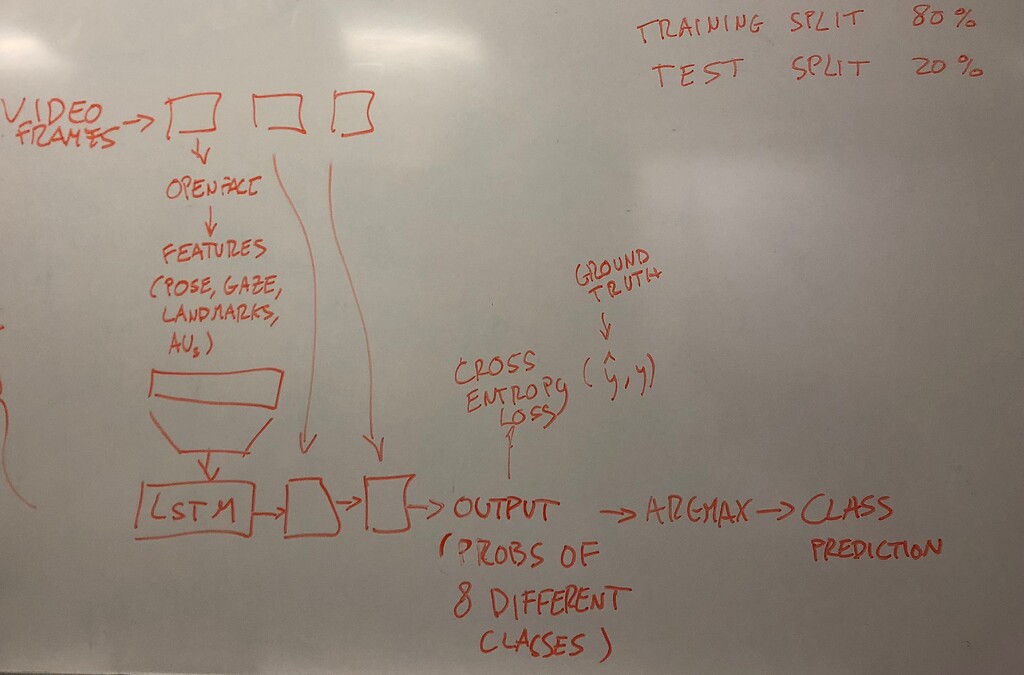 TRAINING SPLIT 80%
TEST SPLIT 20%
VIDEO
FRAMES
OPENFACE
FEATURES
(POSE, GAZE,
LANDMARKS,
AUs)
GROUND
TRUTH
CROSS
ENTROPY
LOSS
(ŷ, y)
LSTM
OUTPUT
(PROBS OF
8 DIFFERENT
CLASSES)
ARGMAX
CLASS
PREDICTION